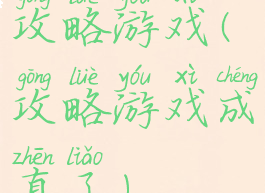 gōng lüè yóu xì
攻略游戏(
gōng lüè yóu xì chéng
攻略游戏成
zhēn liǎo
真了)